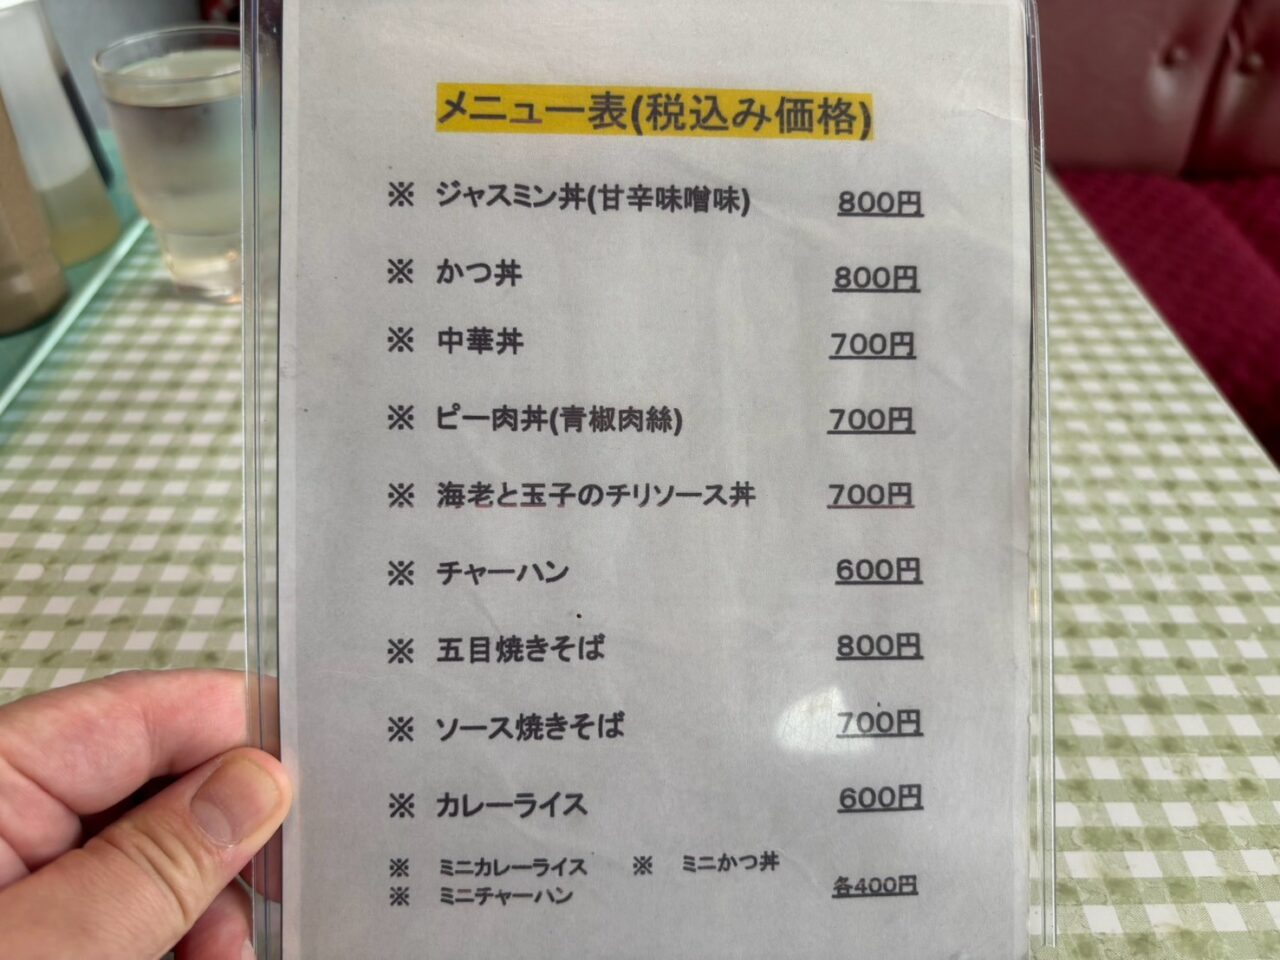 メニュー表(税込み価格)
※ ジャスミン丼(甘辛味噌味) 800円
※ かつ丼 800円
※ 中華丼 700円
※ ピー肉丼(青椒肉絲) 700円
※ 海老と玉子のチリソース丼 700円
※ チャーハン 600円
※ 五目焼きそば 800円
※ ソース焼きそば 700円
※ カレーライス 600円
※ ミニカレーライス ※ ミニかつ丼
※ ミニチャーハン 各400円